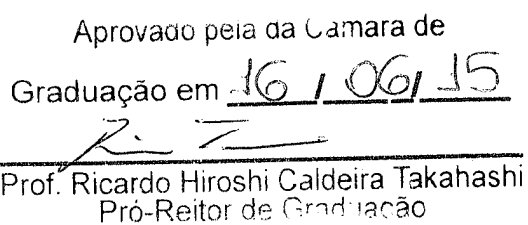 Aprovado pela da Câmara de
Graduação em 16 / 06 / 15
Prof. Ricardo Hiroshi Caldeira Takahashi
Pró-Reitor de Graduação